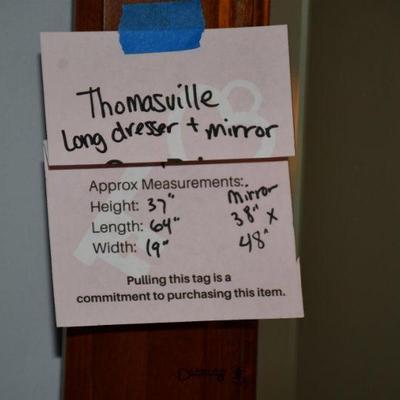 Thomasville
Long dresser + mirror
Approx Measurements:
Height: 37"
Length: 64"
Width: 19"
Mirror
38" x
48"
Pulling this tag is a
commitment to purchasing this item.